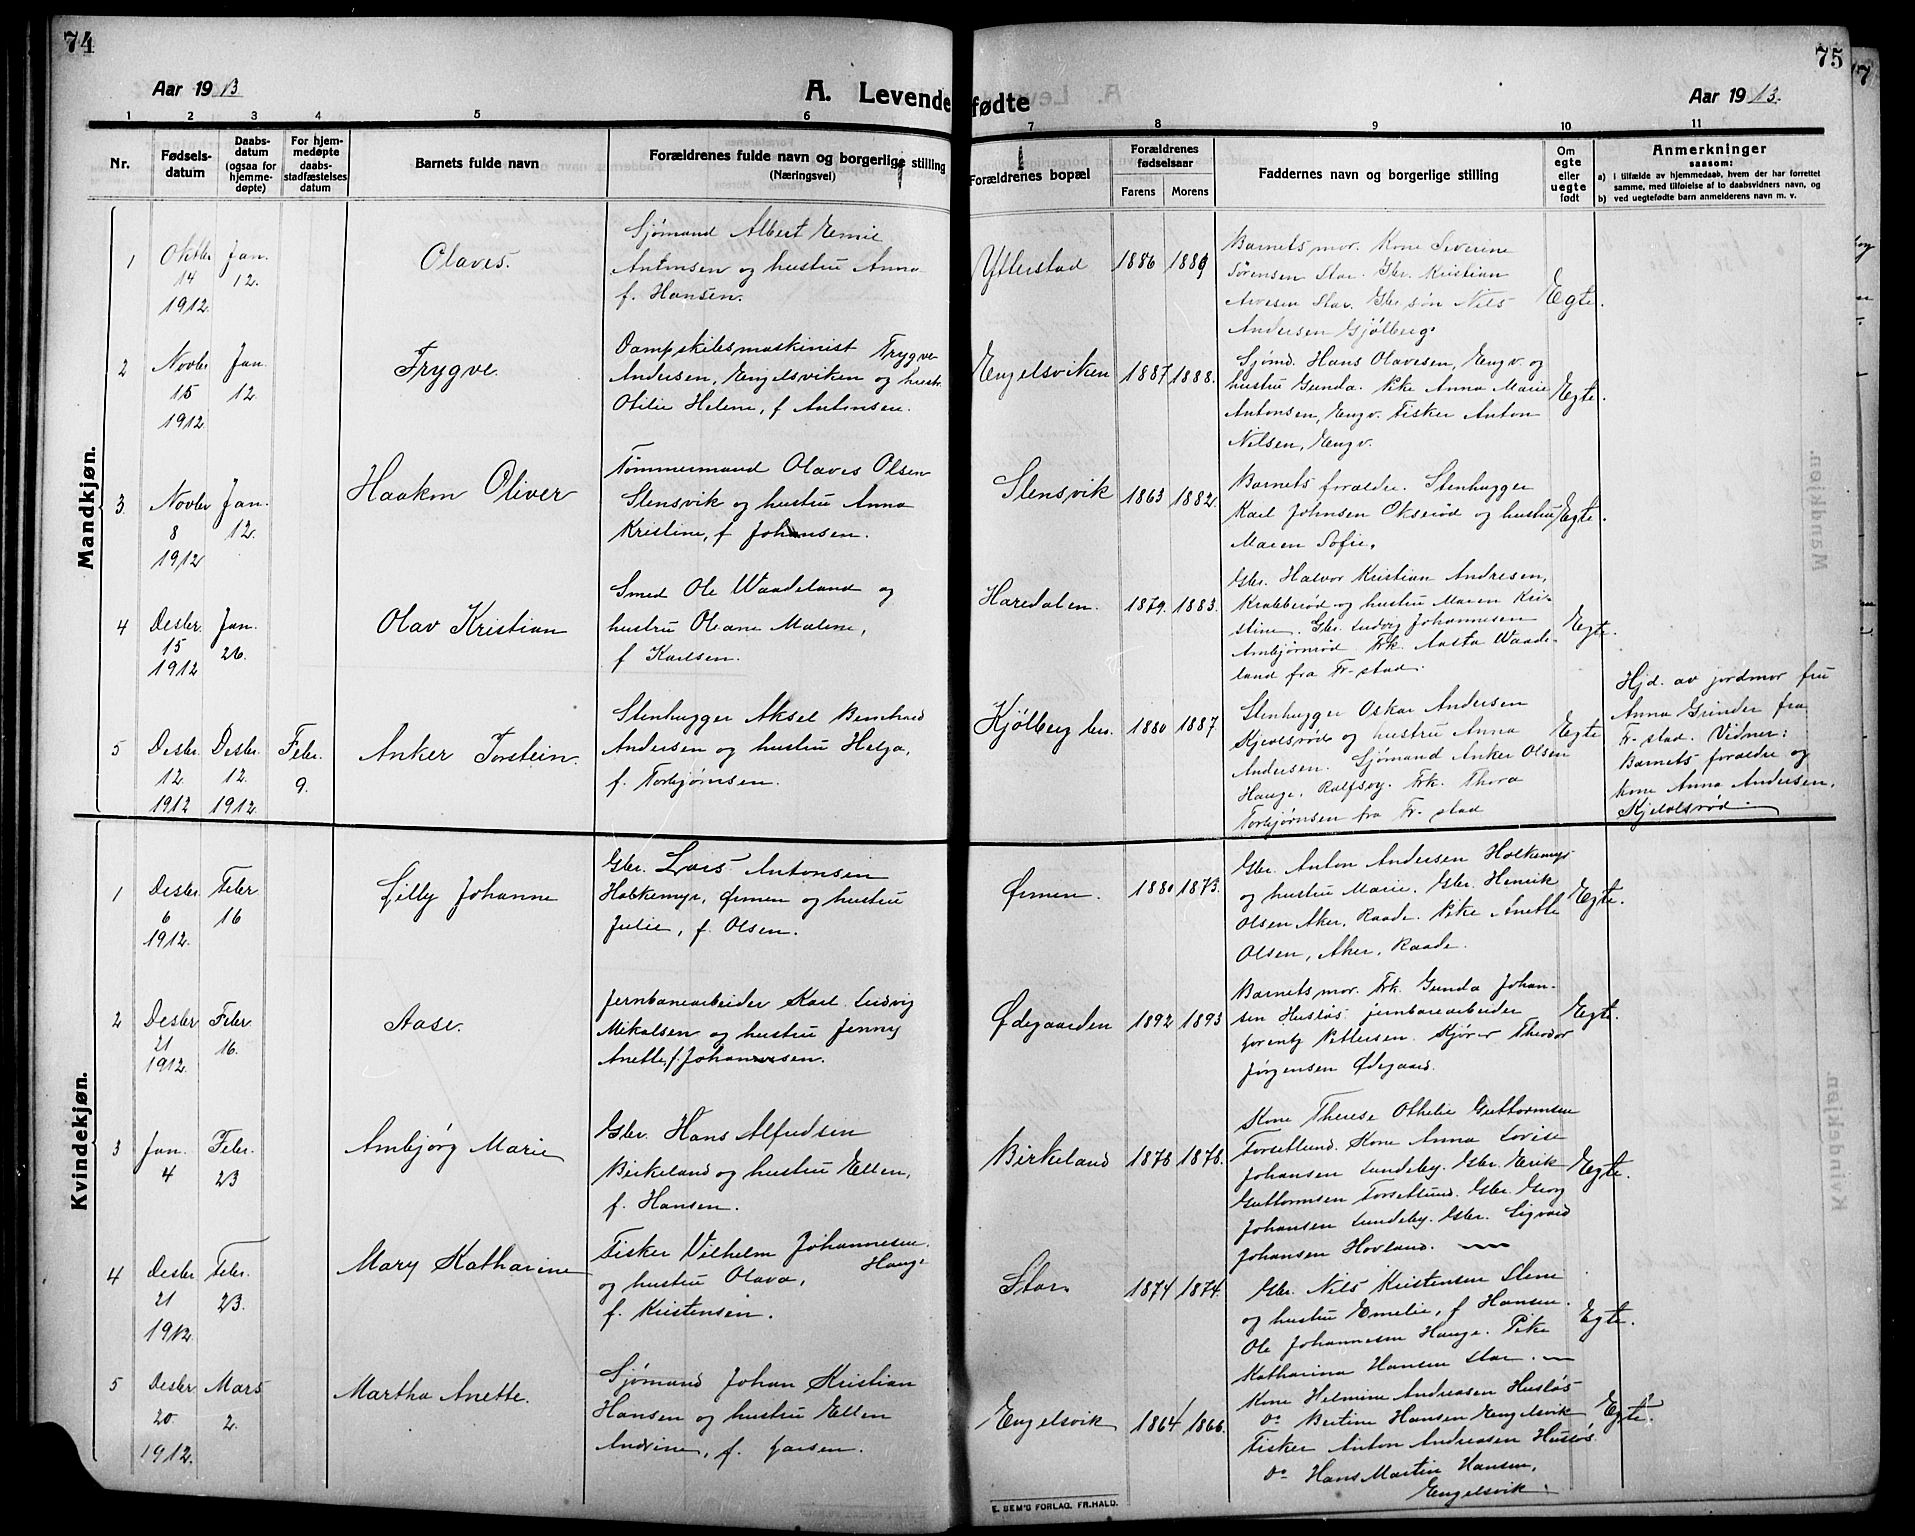 74
Aar 1913
A. Levende
1 2 3 4 5 6
Nr.
Fødsels-
datum
Daabs-
datum
(ogsaa for
hjemme-
døpte)
For hjem-
medøpte
daabs-
stadfæstelses
datum
Barnets fulde navn
Forældrenes fulde navn og borgerlige stilling
(Næringsvei)
Mandkjøn.
1
Oktbr.
14
1912
Jan.
12.
Olaves.
Sjømand Albert Emil
Antonsen og hustru Anna
f. Hansen.
2
Novbr
15
1912
Jan.
12
Trygve.
Dampskibsmaskinist Trygve
Andersen, Engelsviken og hustr.
Otilie Helene, f Antonsen.
3.
Novbr
8
1912
Jan.
12.
Haakon Oliver
Tømmermand Olaves Olsen
Slensvik og hustru Anna
Kristine, f Johansen.
4
Desbr.
15
1912
Jan.
26.
Olav Kristian
Smed Ole Waadeland og
hustru Oleane Malene,
f Karlsen.
5
Desbr.
12
1912
Desbr.
12.
1912.
Febr.
9.
Anker Torstein.
Stenhugger Aksel Bernhard
Andersen og hustru Helga,
f. Torbjørnsen.
Kvindekjøn.
1
Desbr.
6
1912.
Febr
16
Lilly Johanne
Gbr. Lars Antonsen
Holkemyr, Ørmen og hustru
Julie, f. Olsen.
2
Desbr
21
1912.
Febr.
16.
Aase.
Jernbanearbeider Karl Ludvig
Mikalsen og hustru Jenny
Anette, f. Johannesen.
3
Jan.
4
Febr.
23
Ambjørg Marie
Gbr. Hans Alfredsen
Birkeland og hustru Ellen,
f. Hansen.
4
Desbr.
21
1912.
Febr.
23.
Mary Katharine
Fisker Vilhelm Johannesen
Hauge
og hustru Olava,
f. Kristensen.
5
Desbr.
20.
1912.
Mars
2.
Martha Anette.
Sjømand Johan Kristian
Hansen og hustru Ellen
Andrine, f. Larsen.
75
fødte
Aar 1913.
7 8 9 10 11
Forældrenes bopæl
Forældrenes
fødselsaar
Farens
Morens
Faddernes navn og borgerlige stilling
Om
egte
eller
uegte
født
Anmerkninger
saasom:
a) i tilfælde av hjemmedaab, hvem der har forrettet
samme, med tilføielse af to daabsvidners navn, og
b) ved uegtefødte barn anmelderens navn m. v.
Ytterstad
1886 1889
Barnets mor. Kone Severine
Sørensen Star. Gbr. Kristian
Arvesen Star. Gbr søn Nils
Andersen Gjølberg.
Egte.
Engelsviken
1887 1888.
Sjømd. Hans Olavesen, Engv. og
hustru Gunda. Pike Anna Marie
Antonsen, Engv. Fisker Anton
Nilsen, Engv.
Egte.
Slensvik
1863 1882.
Barnets forældre. Stenhugger
Karl Johnsen Okserød og hustru
Maren Sofie.
Egte.
Haredalen.
1879. 1883.
Gbr. Halvor Kristian Andresen,
Krabberød og hustru Maren Kri-
stine. Gbr. Ludvig Johannesen
Ambjørnrød Frk. Aasta Waade-
land fra Fr-stad.
Egte.
Kjølberg bru.
1880 1887.
Stenhugger Oskar Andersen
Kjevlsrød og hustru Anna
Andersen. Sjømand Anker Olsen
Hauge, Rolfsøy. Frk. Thora
Torbjørnsen fra Fr-stad
Egte
Hjd. av jordmor fru
Anna Grinder fra
Fr-stad. Vidner:
Barnets forældre og
kone Anna Andersen,
Kjevlsrød.
Ørmen.
1880 1873.
Gbr. Anton Andersen Holkemyr
og hustru Marie. Gbr. Henrik
Olsen Aker, Raade. Pike Anette
Olsen, Aker, Raade.
Egte.
Ødegaarden
1892 1893
Barnets mor. Frk. Gunda Johan-
sen Husløs. jernbanearbeider
Lorentz Pettersen. Kjører Theodor
Jørgensen Ødegaard.
Egte.
Birkeland
1878 1878.
Kone Therese Othelie Guttormsen
Torsetlund. Kone Anna Lovise
Johansen Lundeby. Gbr. Erik
Guttormsen Torsetlund. Gbr. Georg
Johansen Lundeby. Gbr. Sigvard
Johansen Hovland.
Egte.
Star.
1874 1874.
Gbr. Nils Kristensen Stene
og hustru Emelie, f Hansen.
Ole Johannesen Hauge. Pike
Katharina Hansen Star.
Egte.
Engelsvik
1864 1866.
Kone Helmine Andreasen Husløs
do Bertine Hansen Engelsvik
Fisker Anton Andreasen Husløs.
do Hans Martin Hansen,
Engelsvik.
Egte.
E. SEM'S FORLAG, FR.HALD.